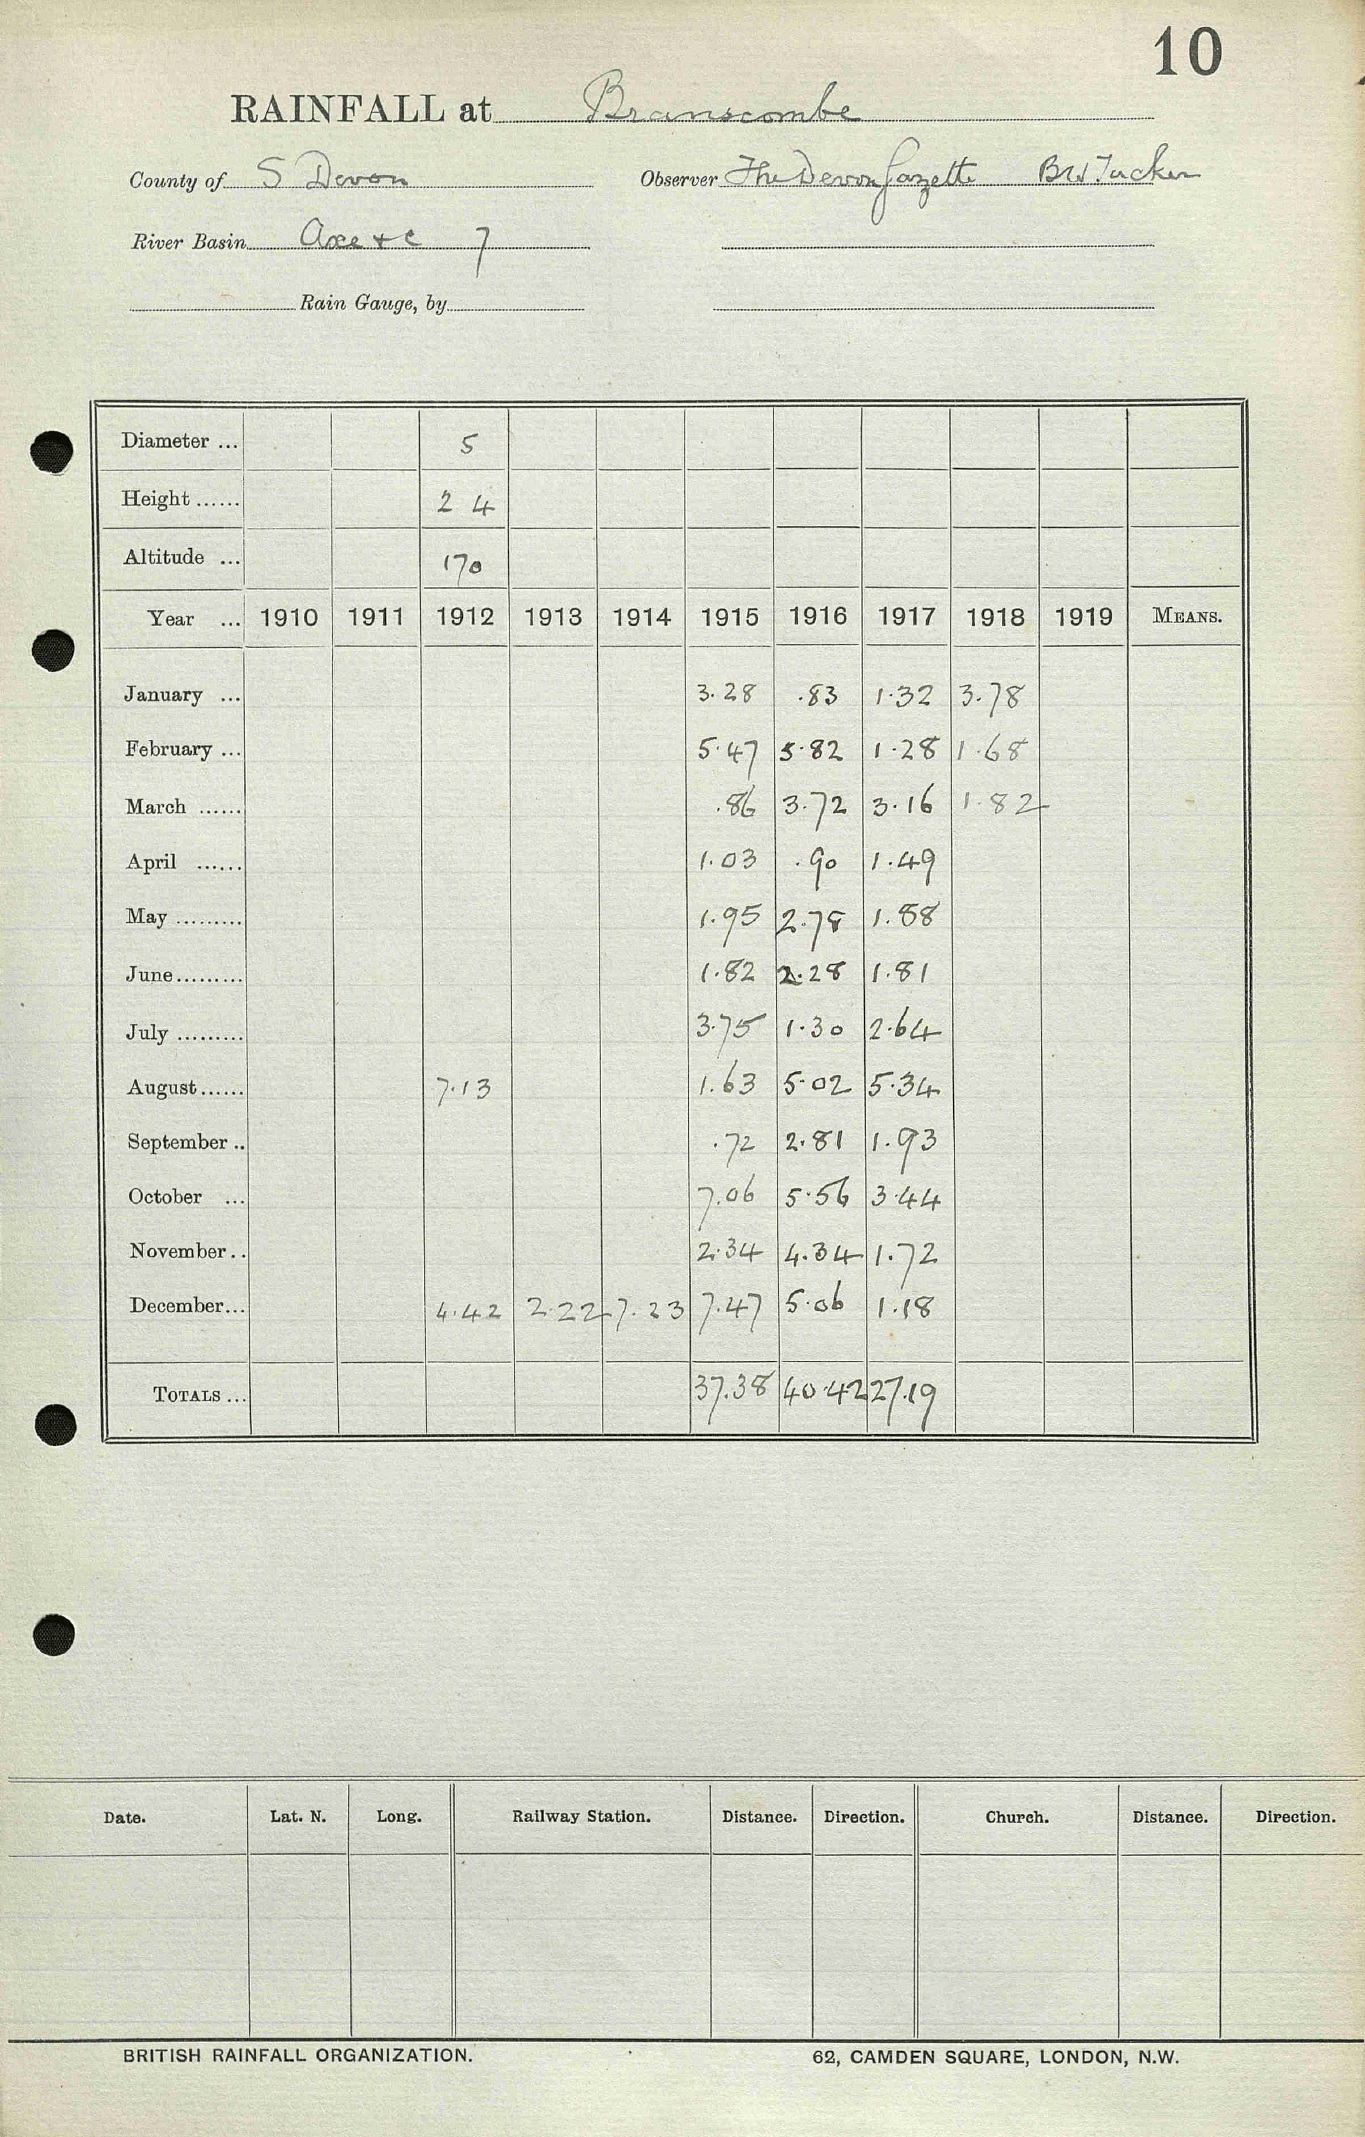 10
RAINFALL at Branscombe
County of S Devon Observer The Devon Gazette BW Tucker
River Basin Axe &c 7
Rain Gauge, by
Diameter ... 5
Height ...... 2 4
Altitude ... 170
Year ... 1910 1911 1912 1913 1914 1915 1916 1917 1918 1919 MEANS.
January ... 3.28 .83 1.32 3.78
February ... 5.47 5.82 1.28 1.68
March ...... .86 3.72 3.16 1.82
April ...... 1.03 .90 1.49
May ......... 1.95 2.78 1.88
June......... 1.82 2.28 1.81
July ......... 3.75 1.30 2.64
August...... 7.13 1.63 5.02 5.34
September .. .72 2.81 1.93
October ... 7.06 5.56 3.44
November.. 2.34 4.34 1.72
December... 4.42 2.22 7.23 7.47 5.06 1.18
TOTALS ... 37.38 40.42 27.19
Date. Lat. N. Long. Railway Station. Distance. Direction. Church. Distance. Direction.
BRITISH RAINFALL ORGANIZATION. 62, CAMDEN SQUARE, LONDON, N.W.